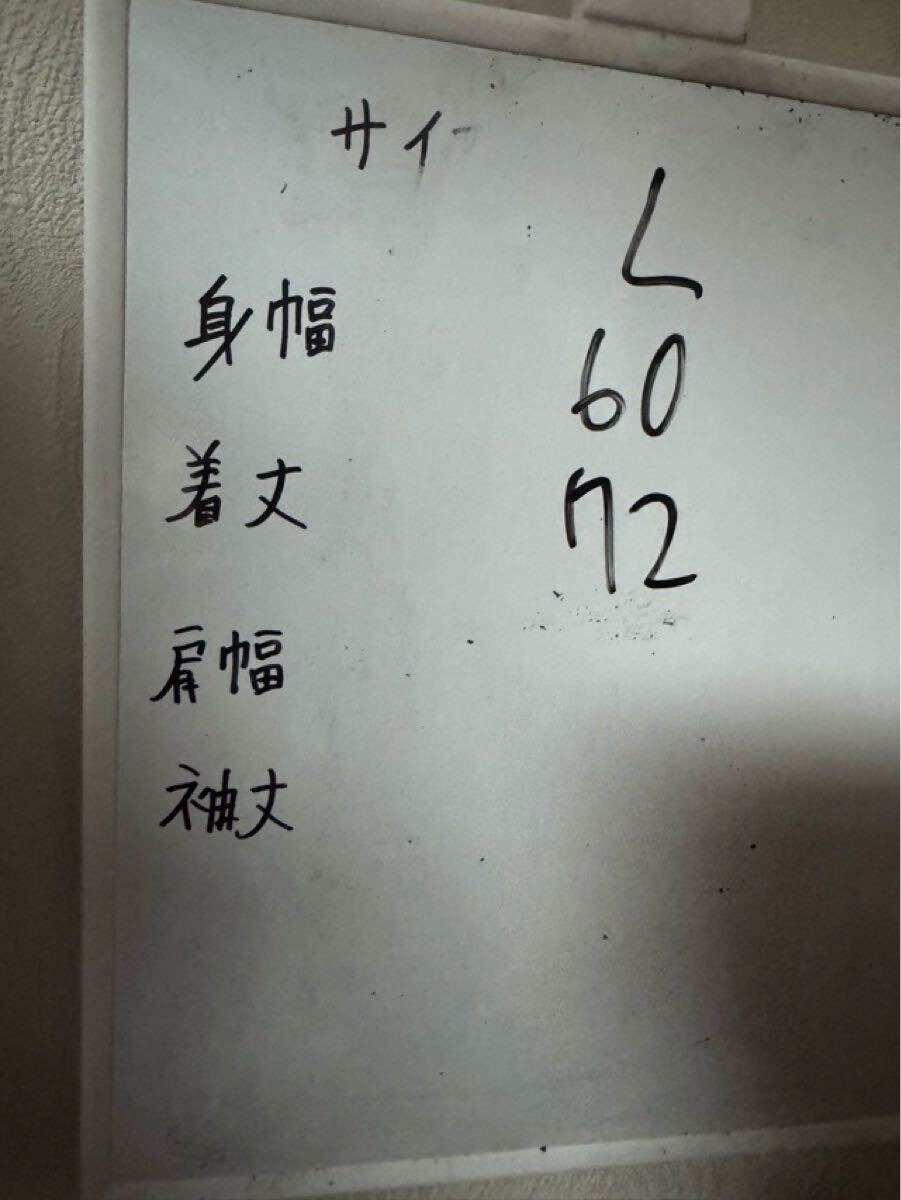 サイ
L
身幅 60
着丈 72
肩幅
袖丈